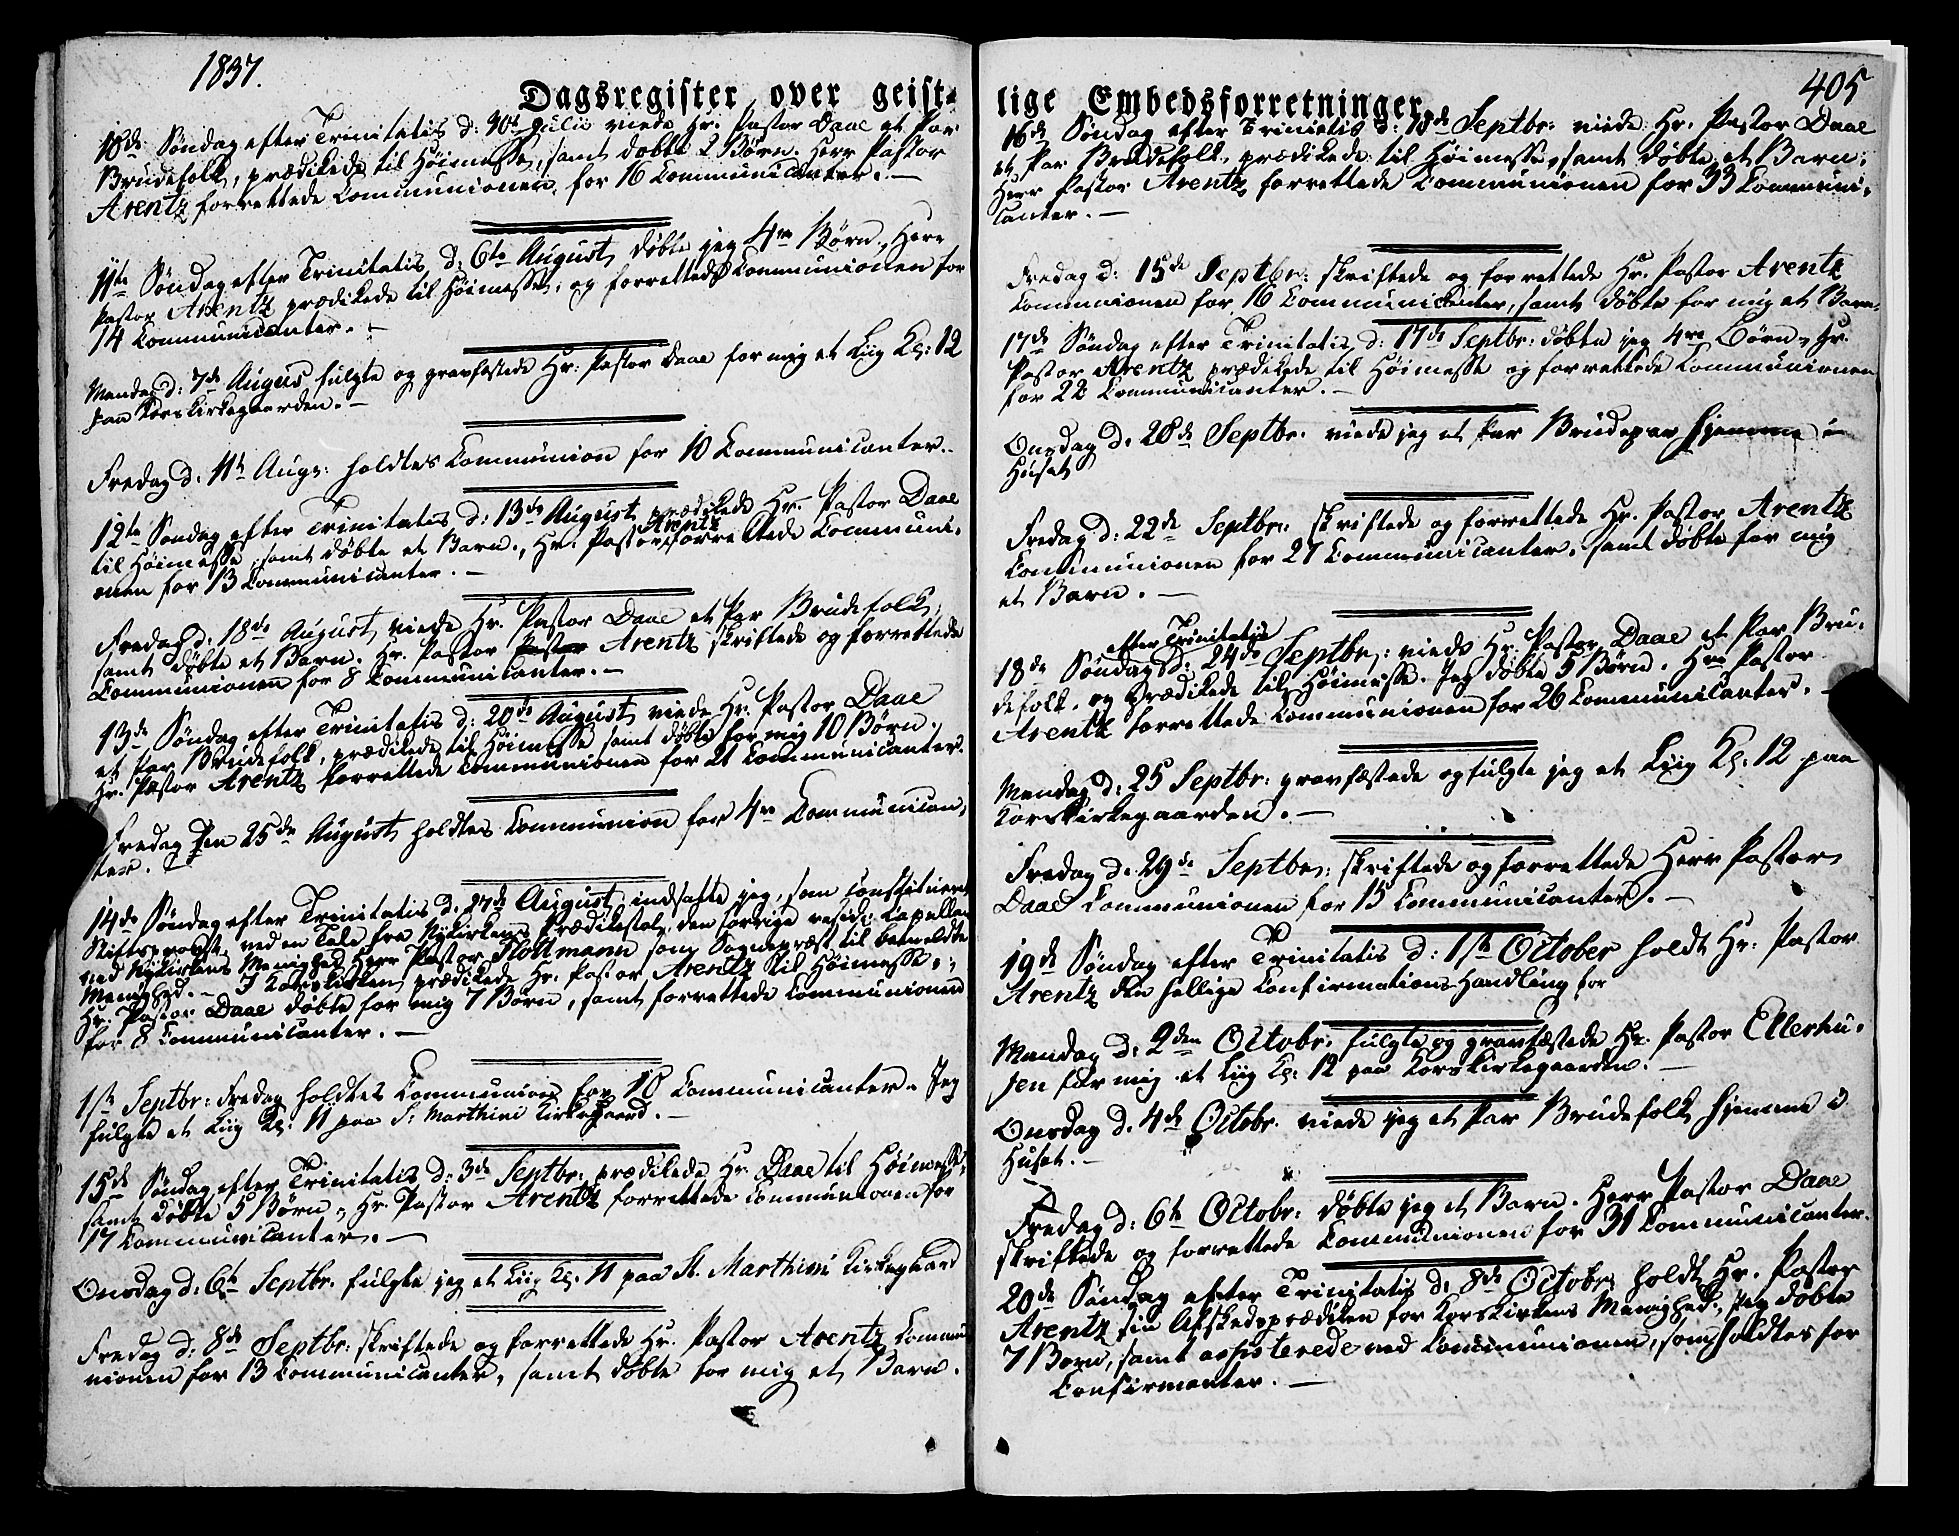 1837.
Dagsregister over geist-
10de Søndag efter Trinitatis d: 30te Julii viede Hr. Pastor Daae et Par
Brudefolk, prædikede til Høimesse, samt døbte 2 Børn. Herr Pastor
Arentz forrettede Communionen for 16 Communicanter. —
11te Søndag efter Trinitatis d: 6te August døbte jeg 4re Børn, Herr
Pastor Arentz prædikede til Høimesse, og forrettede Communionen for
14 Communicanter. —
Mandag d: 7de Augus fulgte og gravfæstede Hr. Pastor Daae for mig et Liig Kl: 12
paa Korskirkegaarden. —
Fredag d. 11te Aug: holdtes Communion for 10 Communicanter. -
12te Søndag efter Trinitatis d: 13de August prædikede Hr. Pastor Daae
til Høimesse, samt døbte et Barn., Hr. Pastor Arentz forrettede Communi-
onen for 13 Communicanter. —
Fredag d. 18de August viede Hr. Pastor Daae et Par Brudefolk,
samt døbte et Barn. Hr. Pastor Pastor Arentz skriftede og forrettede
Communionen for 8 Communicanter. —
13de Søndag efter Trinitatis d: 20de August viede Hr. Pastor Daae
et Par Brudefolk, prædikede til Høimesse samt døbte for mig 10 Børn.
Hr. Pastor Arentz forrettede Communionen for 21 Communicanter.
Fredag den 25de August holdtes Communion for 4re Communican-
ter. —
14de Søndag efter Trinitatis d. 27de August indsatte jeg, som constitueret
Stiftsprovst, ved en Tale fra Nykirkens Prædikestol, den forrige resid: Capellan
ved Nykirkens Menighed Herr Pastor Flottmann som Sognepræst til bemeldte
Menighed. — I Korskirken prædikede Hr. Pastor Arentz til Høimesse.
Hr. Pastor Daae døbte for mig 7 Børn, samt forrettede Communionen
for 8 Communicanter. —
1ste Septbr: Fredag holdtes Communion for 10 Communicanter. Jeg
fulgte et Liig Kl: 11 paa S. Marthini Kirkegaard. —
15de Søndag efter Trinitatis d: 3de Septbr: prædikede Hr. Daae til Høimesse,
samt døbte 5 Børn. Hr. Pastor Arentz forrettede Communionen for
17 Communicanter. —
Onsdag d. 6te Septbr. fulgte jeg et Liig Kl: 11 paa St. Marthini Kirkegaard
Fredag d: 8de Septbr: skriftede og forrettede Hr. Pastor Arentz Commu
nionen for 13 Communicanter, samt døbte for mig et Barn.
lige Embedsforretninger.
405
16de Søndag efter Trinitatis d: 10de Septbr: viede Hr. Pastor Daae
et Par Brudefolk, prædikede til Høimesse, samt døbte et Barn.
Herr Pastor Arentz forrettede Communionen for 33 Communi-
canter. —
Fredag d: 15de Septbr: skriftede og forrettede Hr. Pastor Arentz
Communionen for 16 Communicanter, samt døbte for mig et Barn.
17de Søndag efter Trinitatis d: 17de Septbr: døbte jeg 4re Børn, Hr.
Pastor Arentz prædikede til Høimesse og forrettede Communionen
for 22 Communicanter. —
Onsdag d. 20de Septbr. viede jeg et Par Brudepar hjemme i
Huset
Fredag d: 22de Septbr: skriftede og forrettede Hr. Pastor Arentz
Communionen for 27 Communicanter, samt døbte for mig
et Barn. —
18de Søndag efter Trinitatis d: 24de Septbr: viede Hr. Pastor Daae et Par Bru-
defolk, og prædikede til Høimesse. Jeg døbte 5 Børn. Hr. Pastor
Arentz forrettede Communionen for 26 Communicanter. —
Mandag d: 25 Septbr: gravfæstede og fulgte jeg et Liig Kl: 12 paa
Korskirkegaarden. —
Fredag d. 29de Septbr: skriftede og forrettede Herr Pastor
Daae Communionen for 15 Communicanter. —
19de Søndag efter Trinitatis d: 1ste October holdt Hr. Pastor
Arentz den hellige Confirmations-Handling for
Mandag d. 2den Octobr. fulgte og gravfæstede Hr. Pastor Ellerhu-
sen for mig et Liig Kl: 12 paa Korskirkegaarden. —
Onsdag d. 4de Octobr. viede jeg et Par Brudefolk hjemme i
Huset. —
Fredag d: 6te Octobr: døbte jeg et Barn. Herr Pastor Daae
skriftede og forrettede Communionen for 31 Communicanter.
20de Søndag efter Trinitatis d. 8de Octobr holdt Hr. Pastor
Arentz sin Afskedsprædiken for Korskirkens Menighed. Jeg døbte
7 Børn, samt assisterede ved Communionen, som holdtes for
Confirmanter. —